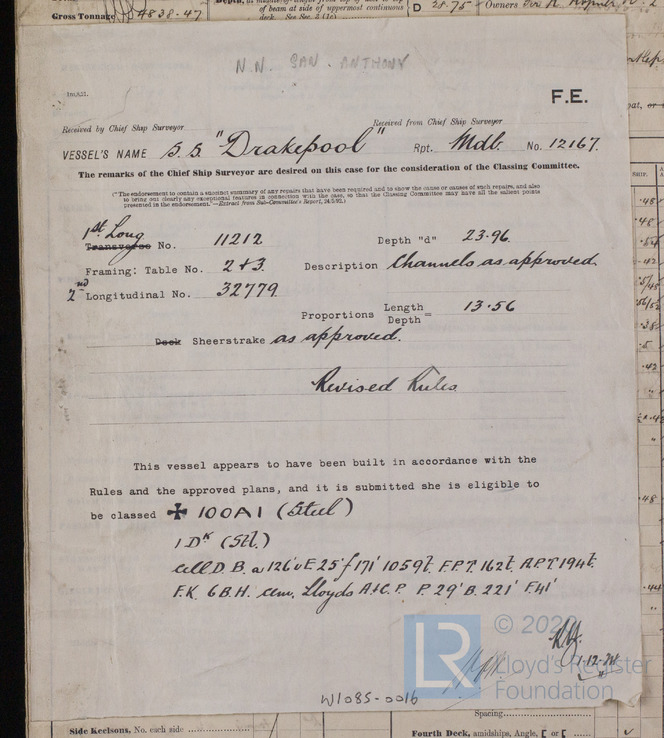 Gross Tonnage 4838.47
of beam at side of uppermost continuous
deck. See Sec. 2 (1e)
D 28.75 Owners
N.N. SAN. ANTHONY
F.E.
Received by Chief Ship Surveyor
Received from Chief Ship Surveyor
VESSEL'S NAME S.S. "Drakepool" Rpt. Mdb. No. 12167.
The remarks of the Chief Ship Surveyor are desired on this case for the consideration of the Classing Committee.
(*The endorsement to contain a succinct summary of any repairs that have been required and to show the cause or causes of such repairs, and also
to bring out clearly any exceptional features in connection with the case, so that the Classing Committee may have all the salient points
presented in the endorsement."—Extract from Sub-Committee's Report, 24/5/92.)
1st Long
Transverse No. 11212 Depth "d" 23.96
Framing: Table No. 2+3. Description Channels as approved.
2nd Longitudinal No. 32779
Proportions Length
Depth = 13.56
Deck Sheerstrake as approved.
Revised Rules
This vessel appears to have been built in accordance with the
Rules and the approved plans, and it is submitted she is eligible to
be classed ✠ 100A1 (Steel)
1 Dk (Stl.)
Cell D.B. a 126' u E 25' f 171' 1059t. F.P.T. 162t. A.P.T 194t.
F.K. 6 B.H. Cem. Lloyds A&C.P. P. 29' B. 221' F. 41'
1.12.24
W1085-0016
LR
© 202
Lloyd's Register
Foundation
Side Keelsons, No. each side
Spacing
Fourth Deck, amidships, Angle, [ or [